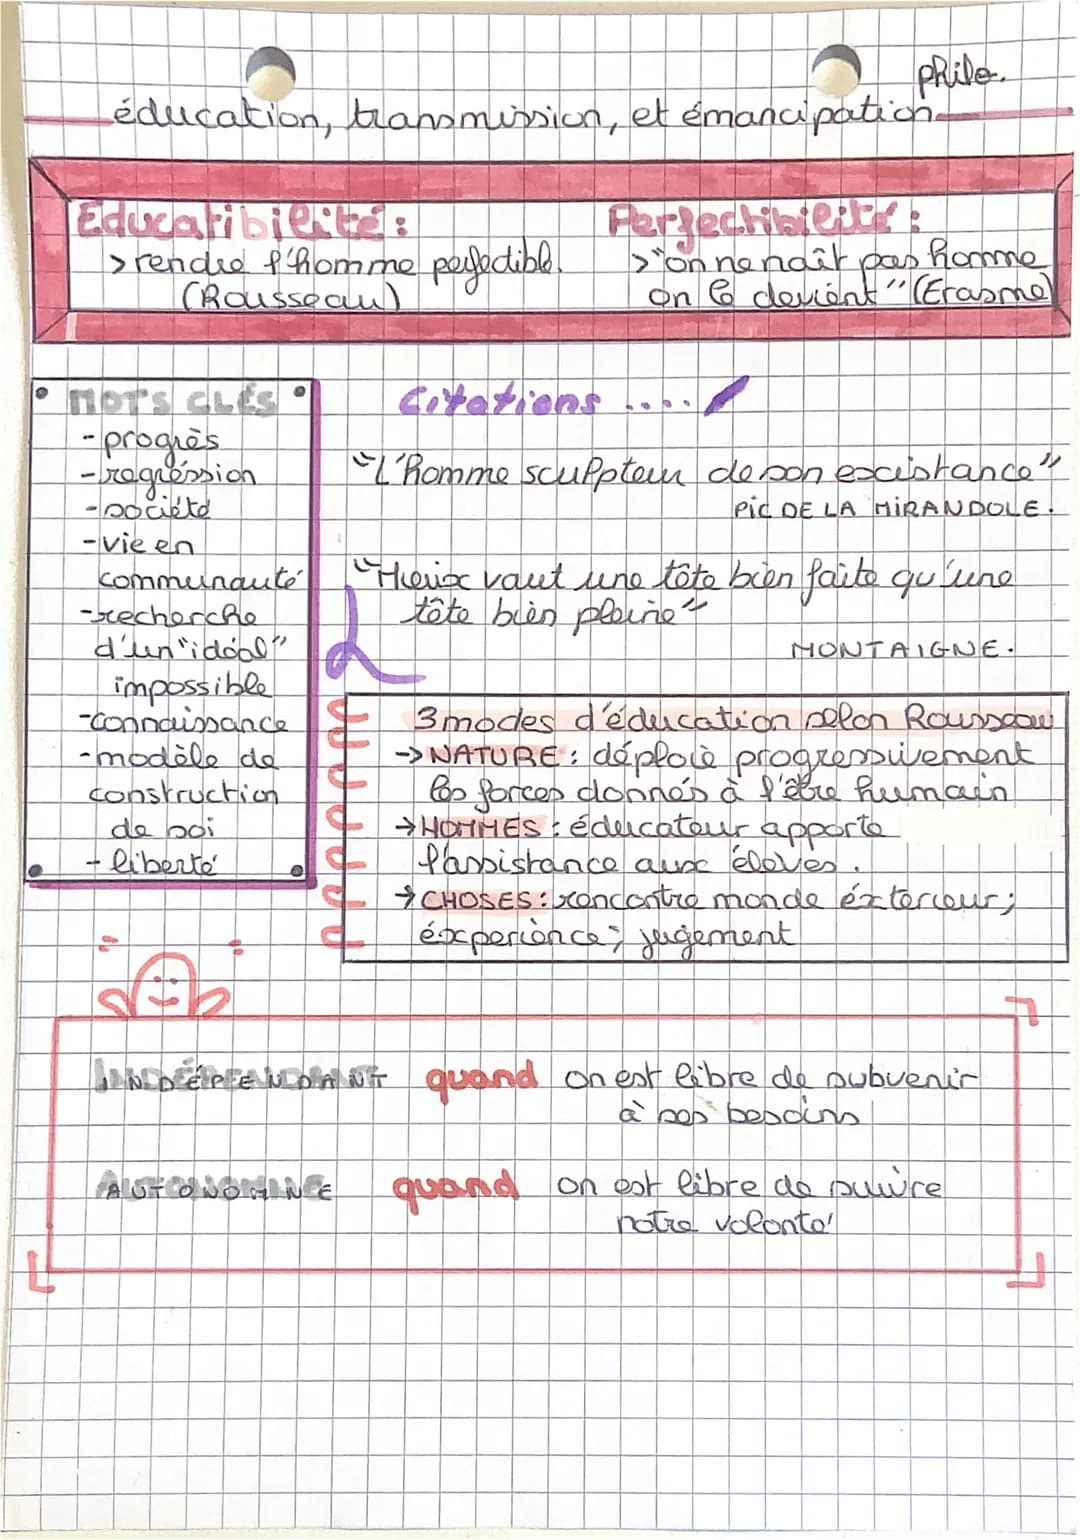 philo.
éducation, transmission, et émancipation
Educatibilité :
> rendre l'homme perfectible.
(Rousseau)
Perfectibilité :
> "on ne naît pas homme
on le devient" (Erasme)
MOTS CLÉS
- progrès
- regréssion
- société
- vie en
communauté
- recherche
d'un "idéal"
impossible
- connaissance
- modèle de
construction
de soi
- liberté
Citations ....
"L'homme sculpteur de son existance"
PIC DE LA MIRANDOLE.
"Mieux vaut une tête bien faite qu'une
tête bien pleine"
MONTAIGNE.
3 modes d'éducation selon Rousseau
-> NATURE : déploie progressivement
les forces donnés à l'être humain
-> HOMMES : éducateur apporte
l'assistance aux élèves.
-> CHOSES : rencontre monde éxterieur ;
éxperience ; jugement
INDÉPENDANT quand on est libre de subvenir
à ses besoins
AUTONOMINE quand on est libre de suivre
notre volonté